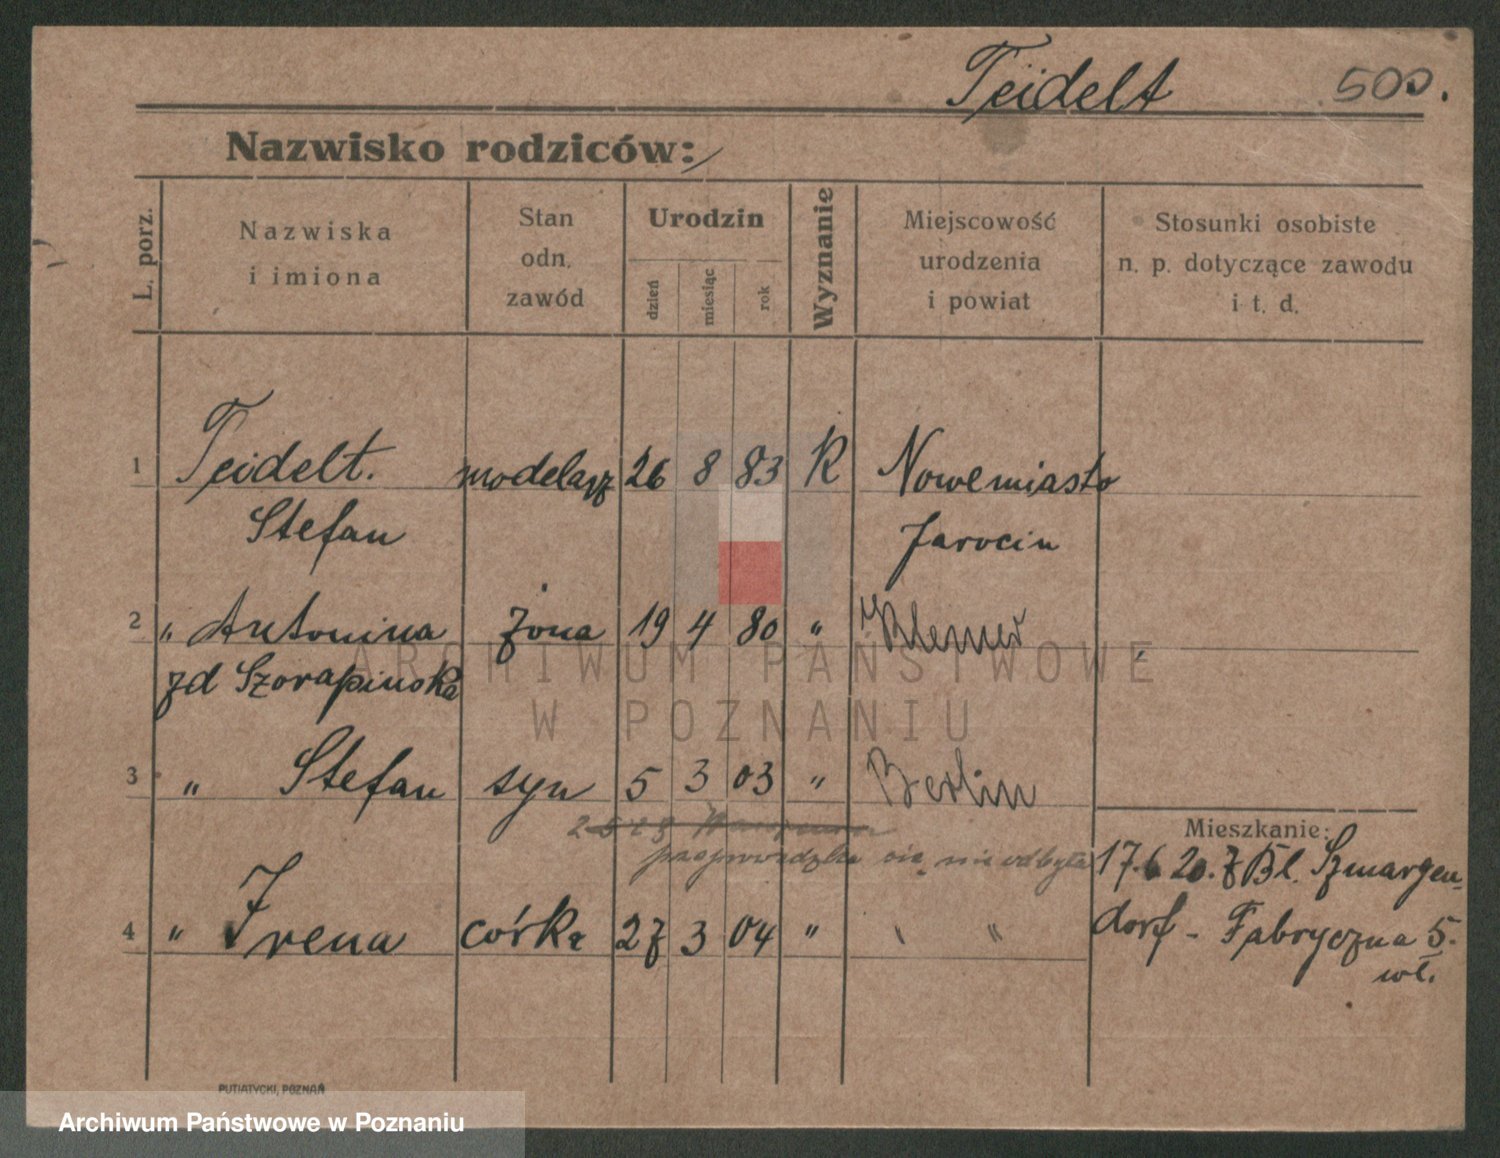 Teidelt 500.
Nazwisko rodziców:
L. porz.
Nazwiska
i imiona
Stan
odn.
zawód
Urodzin
dzień
miesiąc
rok
Wyznanie
Miejscowość
urodzenia
i powiat
Stosunki osobiste
n. p. dotyczące zawodu
i t. d.
1 Teidelt. modelarz 26 8 83 K Nowemiasto
Stefan Jarocin
2 " Antonina żona 19 4 80 "
zd Szorapinska
3 " Stefan syn 5 3 03 " Berlin
Mieszkanie:
przeprowadzka się nie odbyła
17.6 20. z Bl. Szmargen-
4 " Irena córka 27 3 04 " " "
dorf - Fabryczna 5.
wł.
PUTIATYCKI, POZNAŃ
ARCHIWUM PAŃSTWOWE
W POZNANIU
Archiwum Państwowe w Poznaniu